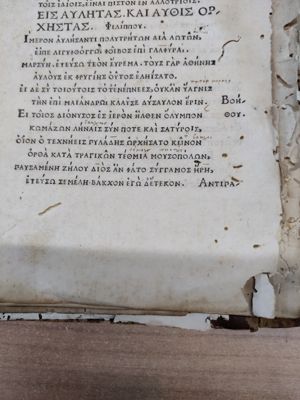 ΤΟΙΣ ΙΔΙΟΙΣ, ΕΙΝΑΙ ΠΙΣΤΟΝ ΕΝ ΑΛΛΟΤΡΙΟΙΣ.
ΕΙΣ ΑΥΛΗΤΑΣ. ΚΑΙ ΑΥΘΙΣ ΟΡ
ΧΗΣΤΑΣ. ΦΙΛΙΠΠΟΥ.
ΙΜΕΡΟΝ ΑΥΛΗΣΑΝΤΙ ΠΟΛΥΤΡΗΤΩΝ ΔΙΑ ΛΩΤΩΝ,
ΕΙΠΕ ΛΙΓΥΦΘΟΓΓΩ ΦΟΙΒΟΣ ΕΠΙ ΓΛΑΦΥΡΑ.
ΜΑΡΣΥΗ, ΕΨΕΥΣΩ ΤΕΟΝ ΕΥΡΕΜΑ. ΤΟΥΣ ΓΑΡ ΑΘΗΝΗΣ
ΑΥΛΟΥΣ ΕΚ ΦΡΥΓΙΗΣ ΟΥΤΟΣ ΕΛΗΙΣΑΤΟ.
ΕΙ ΔΕ ΣΥ ΤΟΙΟΥΤΟΙΣ ΤΟΤ ΕΝΕΠΝΕΕΣ, ΟΥΚ ΑΝ ΥΑΓΝΙΣ
ΤΗΝ ΕΠΙ ΜΑΙΑΝΔΡΩ ΚΛΑΥΣΕ ΔΥΣΑΥΛΟΝ ΕΡΙΝ. ΒΟΗ
ΕΙ ΤΟΙΟΣ ΔΙΟΝΥΣΟΣ ΕΣ ΙΕΡΟΝ ΗΛΘΕΝ ΟΛΥΜΠΟΝ ΘΟΥ.
ΚΩΜΑΖΩΝ ΛΗΝΑΙΣ ΣΥΝ ΠΟΤΕ ΚΑΙ ΣΑΤΥΡΟΙΣ,
ΟΙΟΝ Ο ΤΕΧΝΗΕΙΣ ΠΥΛΑΔΗΣ ΩΡΧΗΣΑΤΟ ΚΕΙΝΟΝ
ΟΡΘΑ ΚΑΤΑ ΤΡΑΓΙΚΩΝ ΤΕΘΜΙΑ ΜΟΥΣΟΠΟΛΩΝ,
ΠΑΥΣΑΜΕΝΗ ΖΗΛΟΥ ΔΙΟΣ ΑΝ ΦΑΤΟ ΣΥΓΓΑΜΟΣ ΗΡΗ,
ΕΨΕΥΣΩ ΣΕΜΕΛΗ ΒΑΚΧΟΝ ΕΓΩ ΔΕΤΕΚΟΝ. ΑΝΤΙΠΑ